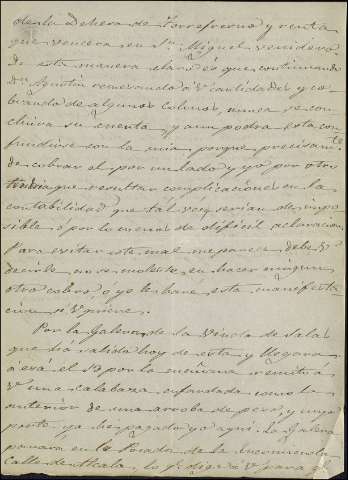 de la Dehesa de Torrefresno y renta
que vencera en Sn. Miguel venidero
de esta manera claro es que continuando
Dn. Agustin renovando a V. cantidades y co-
brando de algunos colonos, nunca se con-
cluira su cuenta y aun podra esta con-
fundirse con la mia porque precisamte.
de cobrar el por un lado y yo por otro
tendria que resultar complicaciones en la
contabilidad que tal vez serian de impo-
sible o por lo menos de dificil aclaracion.
Para evitar este mal me parece debe V.
decirle no se moleste en hacer ningun
otro cobro o yo le haré esta manifesta-
cion si V. quiere.
Por la Galera de la Viuda de Salas
que ha salido hoy de esta y llegara
a esa el 30 por la mañana remiti a
V. una calabaza enfundada como la
anterior de una arroba de peso, y cuyo
porte ya he pagado yo aqui. La Galera
parará en la Posada de la
calle de Alcala, lo qe. digo a V. para qe.